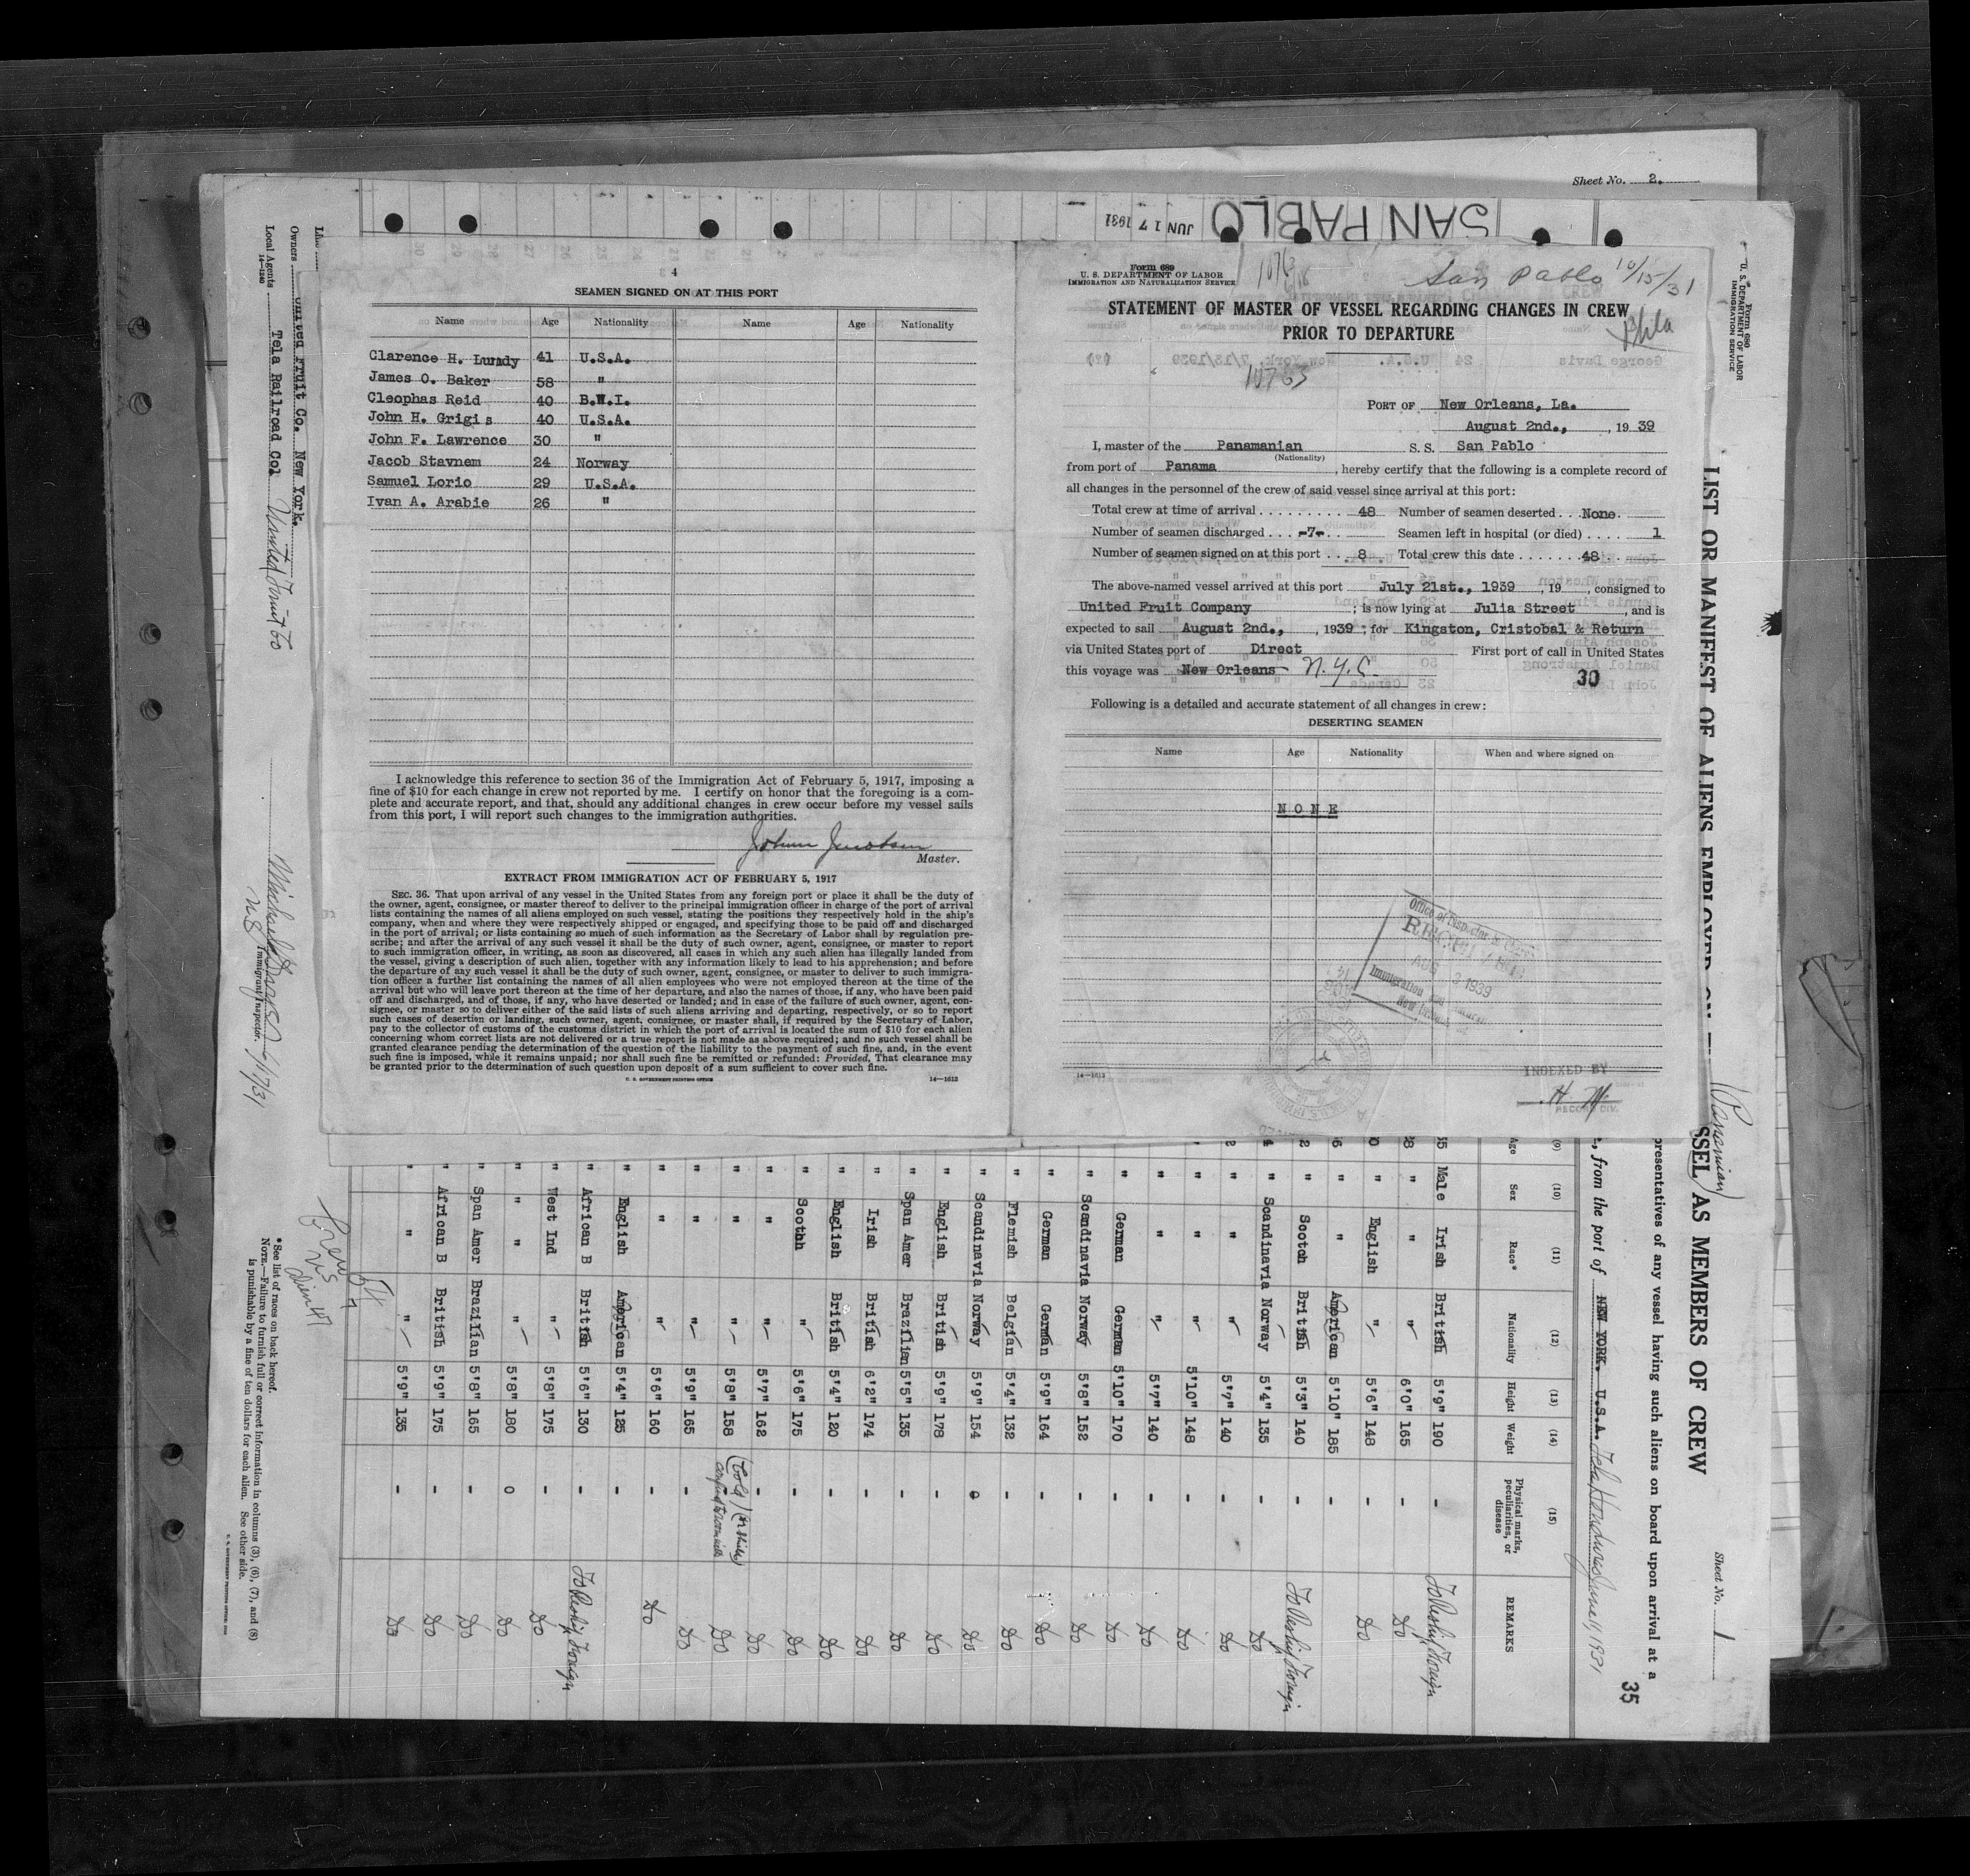 Sheet No. 2.
SAN PABLO
JUN 17 1931
4
SEAMEN SIGNED ON AT THIS PORT
Name Age Nationality Name Age Nationality
Clarence H. Lundy 41 U.S.A.
James O. Baker 58 "
Cleophas Reid 40 B.W.I.
John H. Grigis 40 U.S.A.
John F. Lawrence 30 "
Jacob Stavnem 24 Norway
Samuel Lorio 29 U.S.A.
Ivan A. Arabie 26 "
I acknowledge this reference to section 36 of the Immigration Act of February 5, 1917, imposing a
fine of $10 for each change in crew not reported by me. I certify on honor that the foregoing is a com-
plete and accurate report, and that, should any additional changes in crew occur before my vessel sails
from this port, I will report such changes to the immigration authorities.
Master.
EXTRACT FROM IMMIGRATION ACT OF FEBRUARY 5, 1917
SEC. 36. That upon arrival of any vessel in the United States from any foreign port or place it shall be the duty of
the owner, agent, consignee, or master thereof to deliver to the principal immigration officer in charge of the port of arrival
lists containing the names of all aliens employed on such vessel, stating the positions they respectively hold in the ship's
company, when and where they were respectively shipped or engaged, and specifying those to be paid off and discharged
in the port of arrival; or lists containing so much of such information as the Secretary of Labor shall by regulation pre-
scribe; and after the arrival of any such vessel it shall be the duty of such owner, agent, consignee, or master to report
to such immigration officer, in writing, as soon as discovered, all cases in which any such alien has illegally landed from
the vessel, giving a description of such alien, together with any information likely to lead to his apprehension; and before
the departure of any such vessel it shall be the duty of such owner, agent, consignee, or master to deliver to such immigra-
tion officer a further list containing the names of all alien employees who were not employed thereon at the time of the
arrival but who will leave port thereon at the time of her departure, and also the names of those, if any, who have been paid
off and discharged, and of those, if any, who have deserted or landed; and in case of the failure of such owner, agent, con-
signee, or master so to deliver either of the said lists of such aliens arriving and departing, respectively, or so to report
such cases of desertion or landing, such owner, agent, consignee, or master shall, if required by the Secretary of Labor,
pay to the collector of customs of the customs district in which the port of arrival is located the sum of $10 for each alien
concerning whom correct lists are not delivered or a true report is not made as above required; and no such vessel shall be
granted clearance pending the determination of the question of the liability to the payment of such fine, and, in the event
such fine is imposed, while it remains unpaid; nor shall such fine be remitted or refunded: Provided, That clearance may
be granted prior to the determination of such question upon deposit of a sum sufficient to cover such fine.
U. S. GOVERNMENT PRINTING OFFICE 14—1613
Form 689
U. S. DEPARTMENT OF LABOR
IMMIGRATION AND NATURALIZATION SERVICE
San Pablo 10/15/31
Phila
STATEMENT OF MASTER OF VESSEL REGARDING CHANGES IN CREW
PRIOR TO DEPARTURE
10763
PORT OF New Orleans, La.
August 2nd., , 19 39
I, master of the Panamanian S. S. San Pablo
(Nationality)
from port of Panama , hereby certify that the following is a complete record of
all changes in the personnel of the crew of said vessel since arrival at this port:
Total crew at time of arrival . . . . . . . . . 48 Number of seamen deserted . . . None.
Number of seamen discharged . . . -7- Seamen left in hospital (or died) . . . . 1
Number of seamen signed on at this port . . . 8. Total crew this date . . . . . . . 48
The above-named vessel arrived at this port July 21st., 1939 , 19 , consigned to
United Fruit Company ; is now lying at Julia Street , and is
expected to sail August 2nd., , 1939 ; for Kingston, Cristobal & Return
via United States port of Direct First port of call in United States
this voyage was New Orleans N.Y.C.
30
Following is a detailed and accurate statement of all changes in crew:
DESERTING SEAMEN
Name Age Nationality When and where signed on
NONE
Office of Inspector in Charge
RECEIVED
AUG 2 1939
Immigration and
New Orleans, La.
INDEXED BY
H. M.
RECORD DIV.
14—1613
Form 680
U. S. DEPARTMENT OF LABOR
IMMIGRATION SERVICE
LIST OR MANIFEST OF ALIENS EMPLOYED ON
(Panamian)
SSEL AS MEMBERS OF CREW
Sheet No. 1
presentatives of any vessel having such aliens on board upon arrival at a
35
, from the port of NEW YORK. U.S.A. Tela, Honduras June 11, 1931
(9) (10) (11) (12) (13) (14) (15)
Age Sex Race* Nationality Height Weight Physical marks, peculiarities, or disease REMARKS
55 Male Irish British 5'9" 190 - To Reship Foreign
28 " " " 6'0" 165 - Do
0 " English " 5'6" 148 - Do
6 " " American 5'10" 185 -
2 " Scotch British 5'3" 140 - To Reship Foreign
4 " Scandinavia Norway 5'4" 135 - Do
2 " " " 5'7" 140 - Do
" " " 5'10" 148 - Do
" " " 5'7" 140 - Do
" German German 5'10" 170 - Do
" Scandinavia Norway 5'8" 152 - Do
" German German 5'9" 164 - Do
" Flemish Belgian 5'4" 132 - Do
" Scandinavia Norway 5'9" 154 0 Do
" English British 5'9" 178 - Do
" Span Amer Brazilian 5'5" 135 - Do
" Irish British 6'2" 174 - Do
" English British 5'4" 120 - Do
" Scotch " 5'6" 175 - Do
" " " 5'7" 162 - Do
" " " 5'8" 158 - Do
" " " 5'9" 165 - Do
" " " 5'6" 160 - Do
" English American 5'4" 125 -
" African B British 5'6" 130 - To Reship Foreign
" West Ind " 5'8" 175 - Do
" " " 5'8" 180 0 Do
" Span Amer Brazilian 5'8" 165 - Do
" African B British 5'9" 175 - Do
" " " 5'9" 135 - Do
Crew 54
US 7
Alien 47
*See list of races on back hereof.
NOTE.—Failure to furnish full or correct information in columns (3), (6), (7), and (8)
is punishable by a fine of ten dollars for each alien. See other side.
Owners United Fruit Co. New York.
Local Agents Tela Railroad Col United Fruit Co
14—1240
Immigrant Inspector.
6/17/31